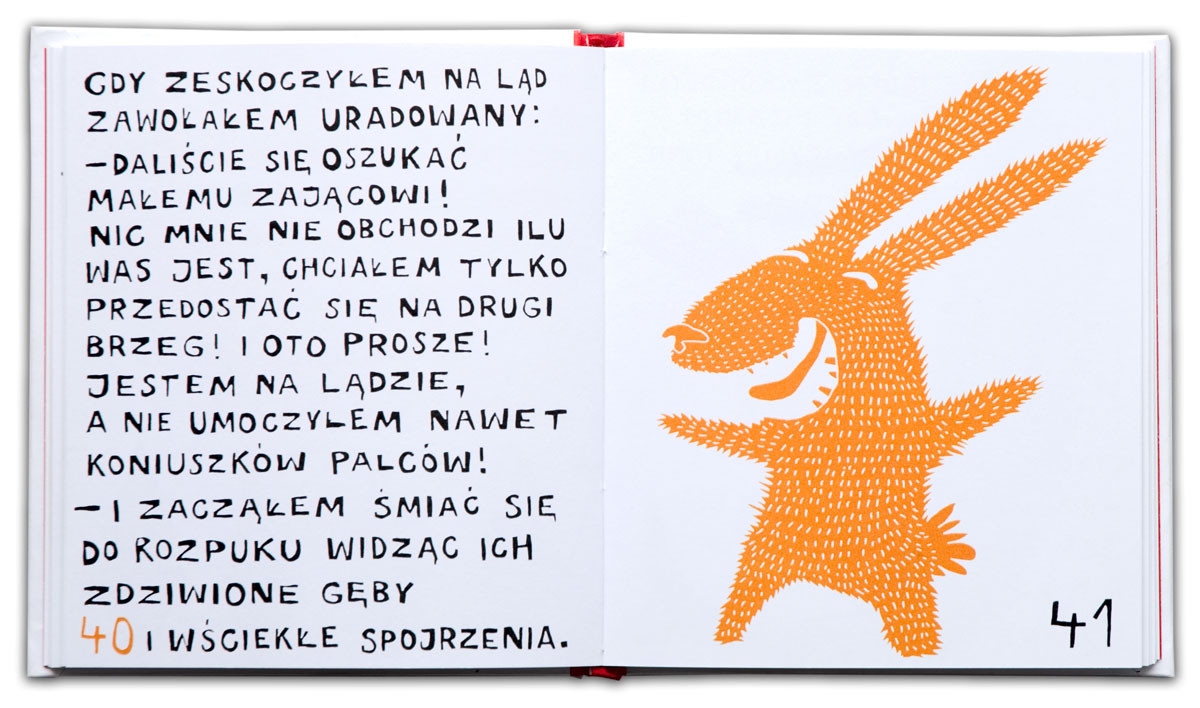 GDY ZESKOCZYŁEM NA LĄD
ZAWOŁAŁEM URADOWANY:
—DALIŚCIE SIĘ OSZUKAĆ
MAŁEMU ZAJĄCOWI!
NIC MNIE NIE OBCHODZI ILU
WAS JEST, CHCIAŁEM TYLKO
PRZEDOSTAĆ SIĘ NA DRUGI
BRZEG! I OTO PROSZE!
JESTEM NA LĄDZIE,
A NIE UMOCZYŁEM NAWET
KONIUSZKÓW PALCÓW!
— I ZACZĄŁEM ŚMIAĆ SIĘ
DO ROZPUKU WIDZĄC ICH
ZDZIWIONE GĘBY
40 I WŚCIEKŁE SPOJRZENIA.
41